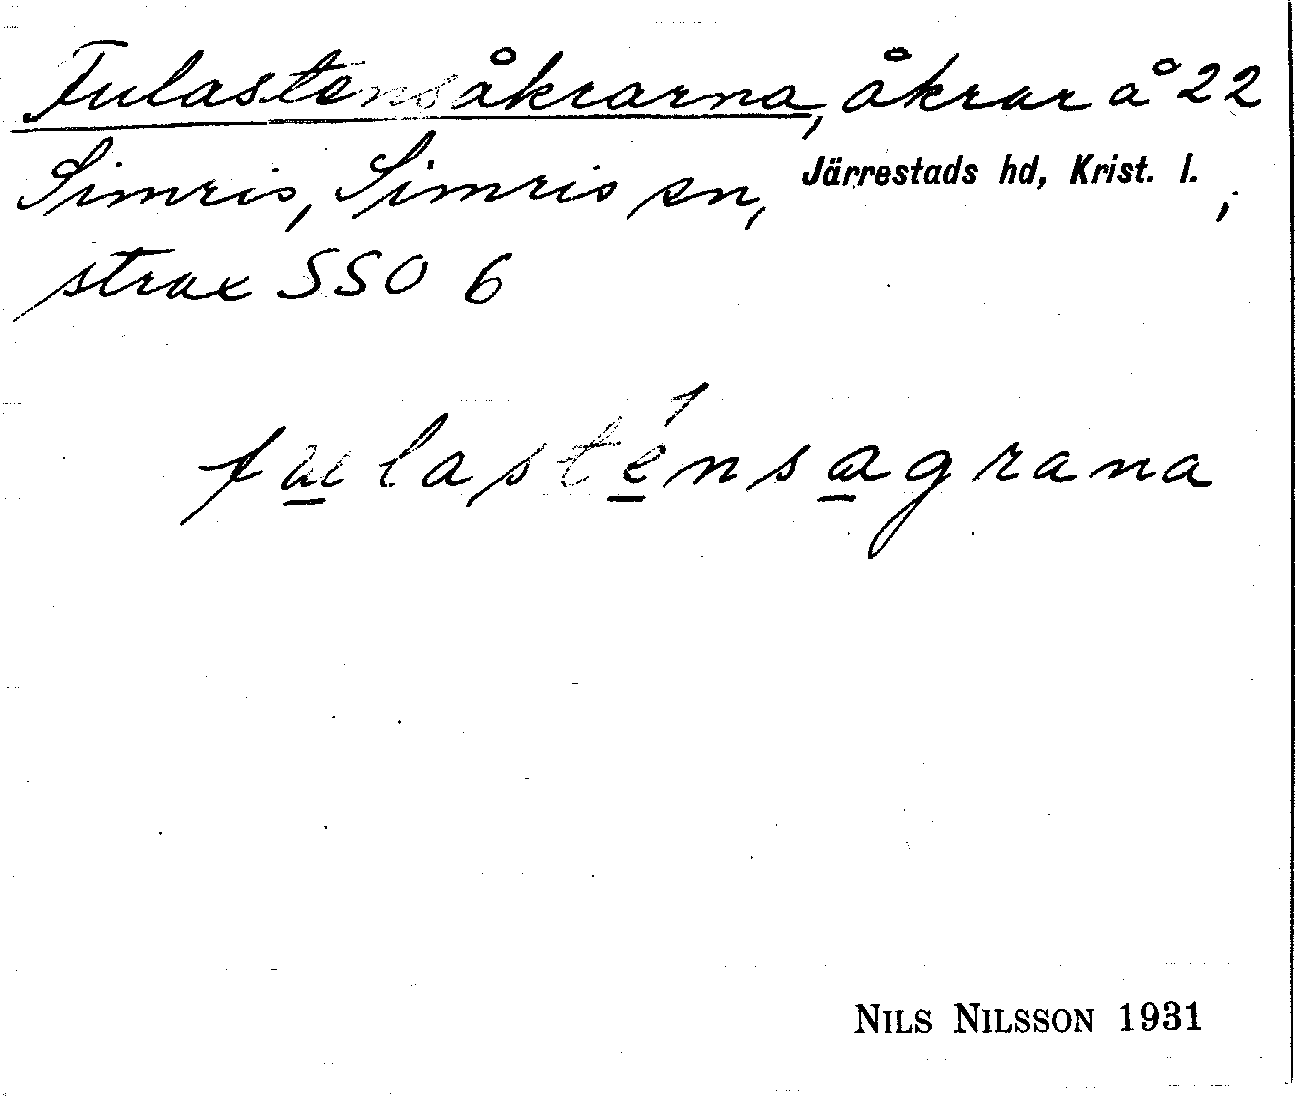 Fulastensåkrarna, åkrar å 22
Simris, Simris sn, Järrestads hd, Krist. l. ,
strax SSO 6
fu̲lasté̲nsa̲grana
NILS NILSSON 1931